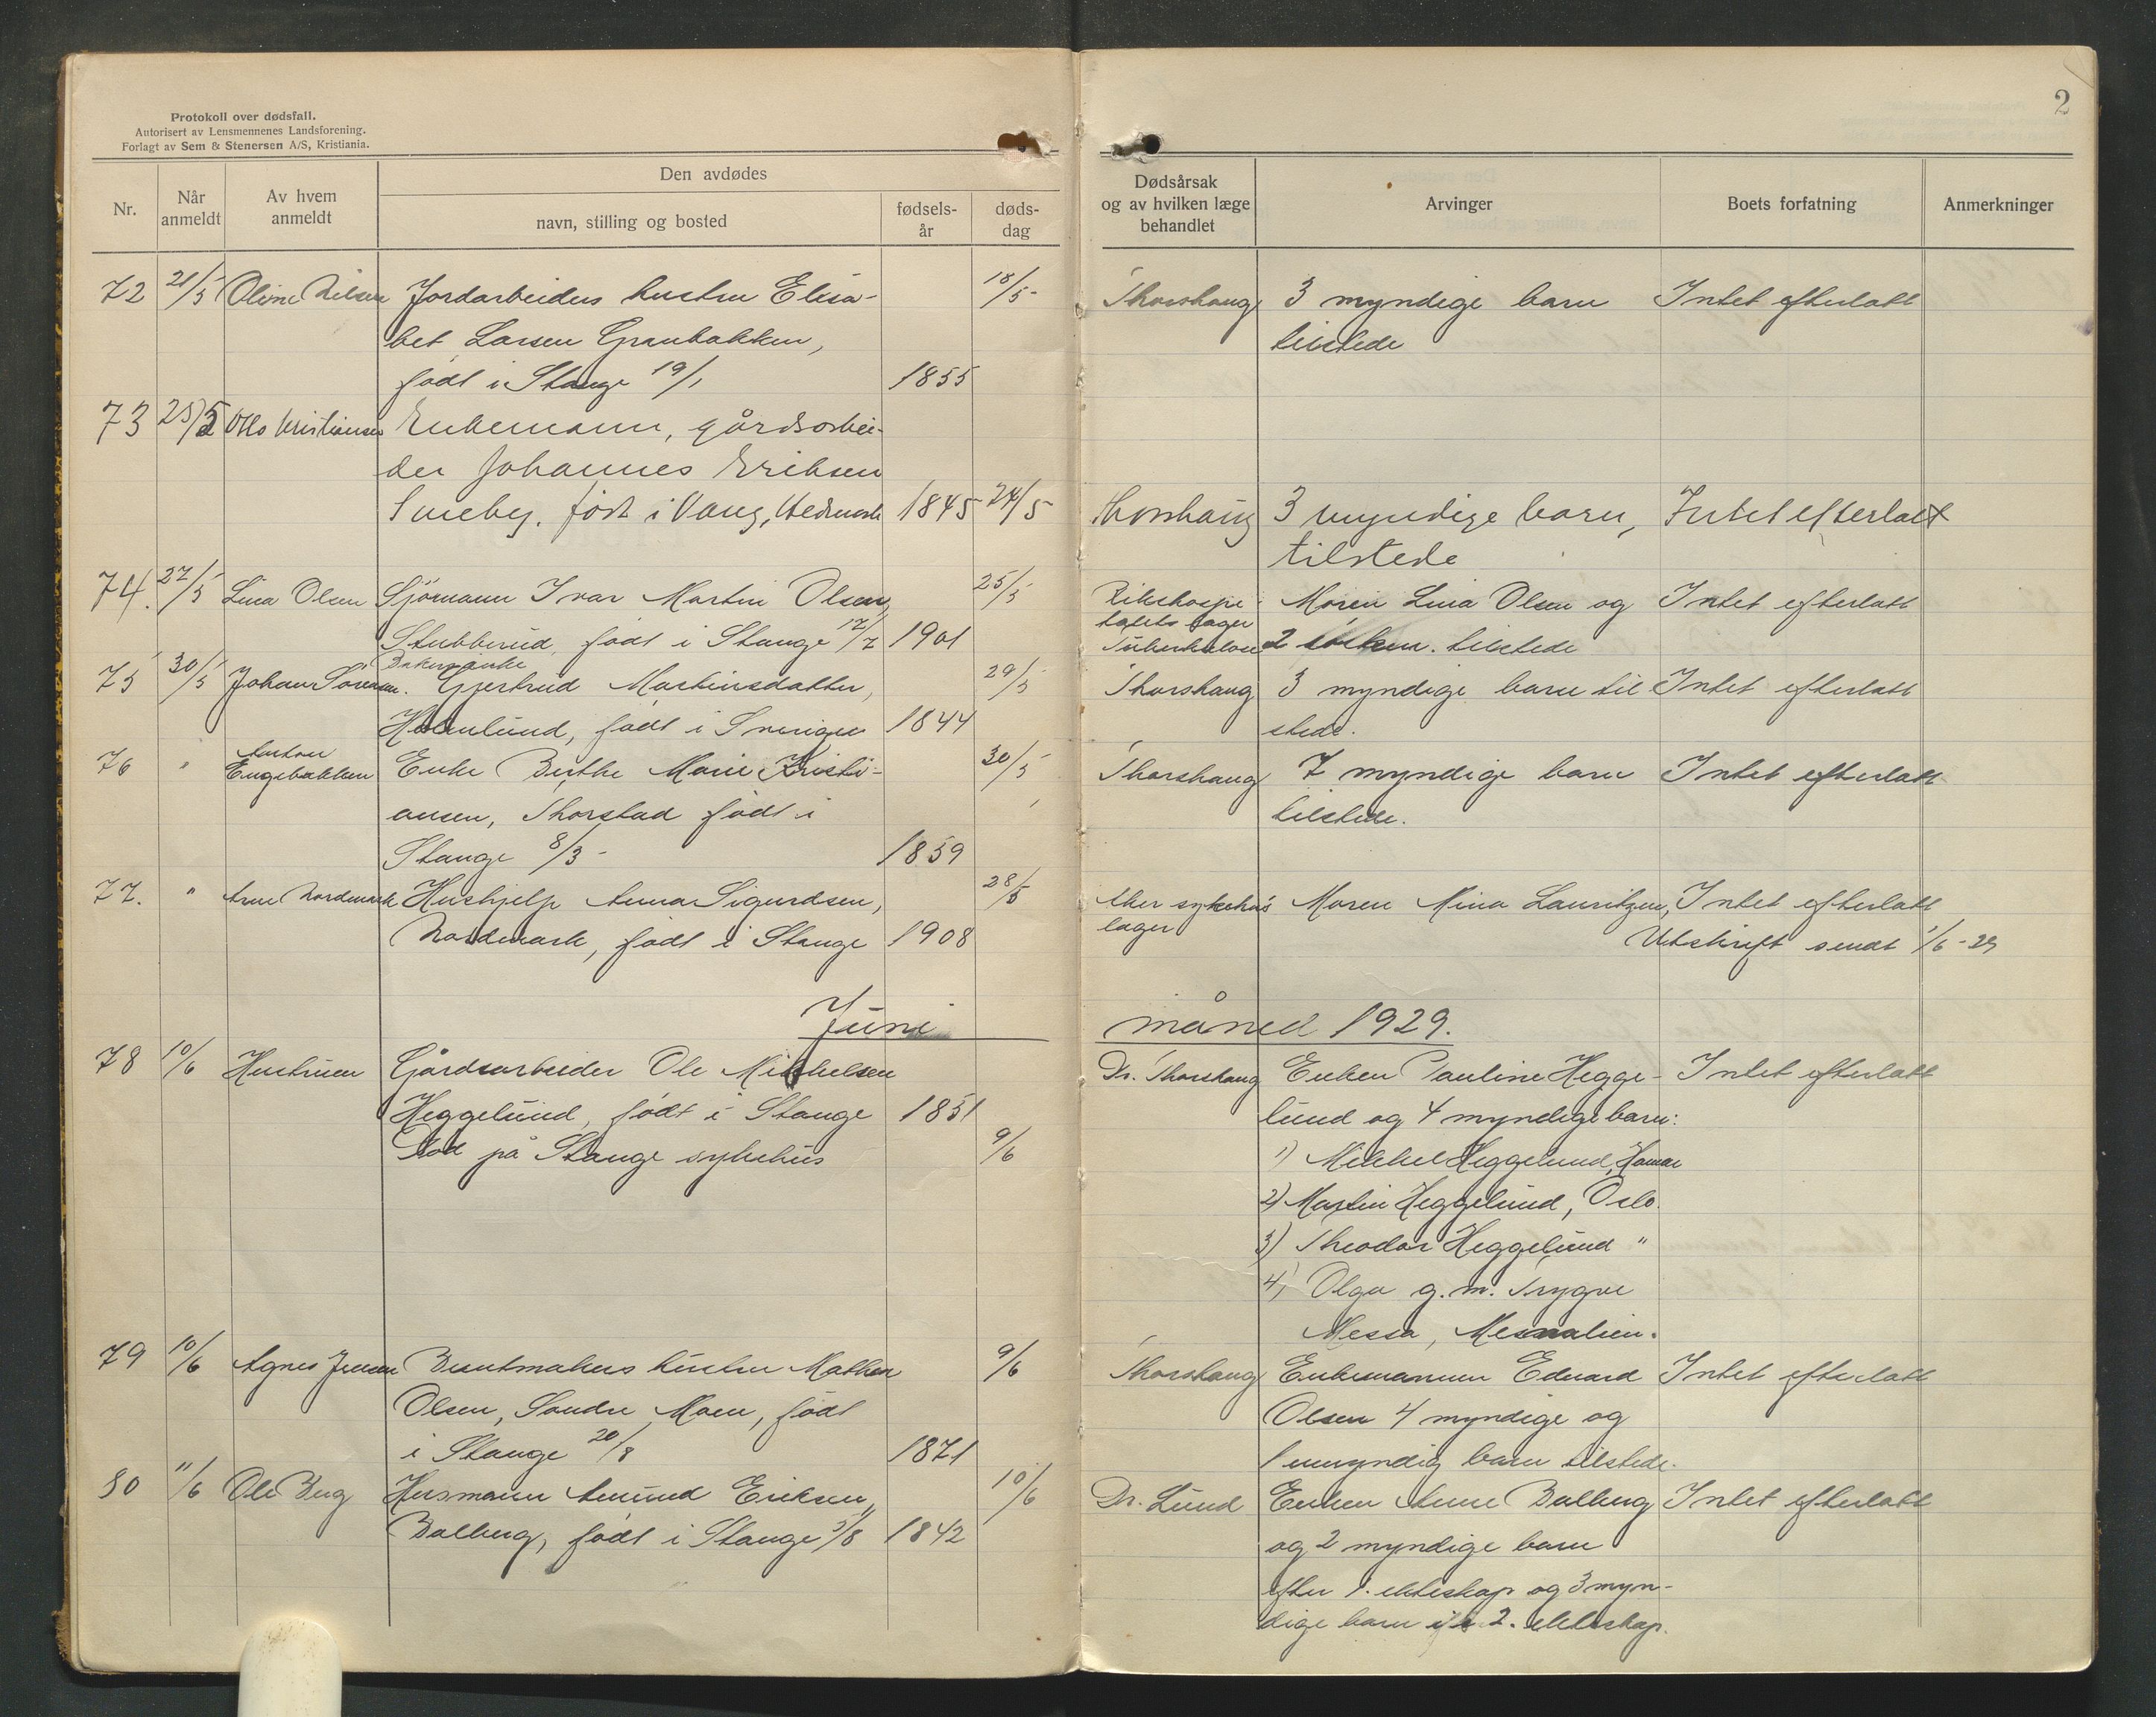 Protokoll over dødsfall.
Autorisert av Lensmennenes Landsforening.
Forlagt av Sem & Stenersen A/S, Kristiania.
2
Nr.
Når anmeldt
Av hvem anmeldt
Den avdødes
navn, stilling og bosted
fødsels-år
døds-dag
Dødsårsak og av hvilken læge behandlet
Arvinger
Boets forfatning
Anmerkninger
72 21/5 Oline Nilsen Jordarbeiders hustru Elisa- 18/5 Thorshaug 3 myndige barn Intet efterlatt
bet Larsen Granbakken, tilstede
født i Stange 19/1 1855
73 25/5 Otto Kristiansen Enkemann, gårdsarbei-
der Johannes Eriksen
født i Vang, Hedmark 1845 24/5 Thorshaug 3 myndige barn, Intet efterlatt
tilstede
74. 27/5 Lina Olsen Sjømann Ivar Martin Olsen, 25/5 Rikshospi- Moren Lina Olsen og Intet efterlatt
talets læger
Stubberud, født i Stange 12/7 1901 Tuberkulose 2 søsken. tilstede
Enke
75 30/5 Johan Sørensen. Gjertrud Martinsdatter, 29/5 Thorshaug 3 myndige barn til Intet efterlatt
Holmlund, født i Sverige 1844 stede.
76 " Anton Engebakken Enke Berthe Marie Kristi- 30/5 Thorshaug 7 myndige barn Intet efterlatt
ansen, Thorstad født i tilstede.
Stange 8/3 - 1859
77. " Arne Nordmark Hushjelp Anna Sigurdsen, 28/5 Aker sykehus Moren Mina Lauritzen, Intet efterlatt
læger
Nordmark, født i Stange 1908 Utskrift sendt 1/6 - 29
Juni måned 1929.
78 10/6 Hustruen Gårdsarbeider Ole Mikkelsen Dr. Thorshaug Enken Pauline Hegge- Intet efterlatt
Heggelund, født i Stange 1851 lund og 4 myndige barn:
Død på Stange sykehus 9/6 1) Mikkel Heggelund, Hamar
2) Martin Heggelund, Oslo.
3) Theodor Heggelund "
4) Olga g. m. Trygve
Messa, Mesnalien.
79 10/6 Agnes Jensen Buntmakers hustru Mathea 9/6 Thorshaug Enkemannen Edvard Intet efterlatt
Olsen, Søndre Moen, født Olsen 4 myndige og
i Stange 20/8 1871 1 umyndig barn tilstede.
80 11/6 Ole Berg Husmann Amund Eriksen, 10/6 Dr. Lund Enken Anne Balberg Intet efterlatt
Balberg, født i Stange 5/8 1842 og 2 myndige barn
efter 1. ekteskap og 3 myn-
dige barn i 2. ekteskap.